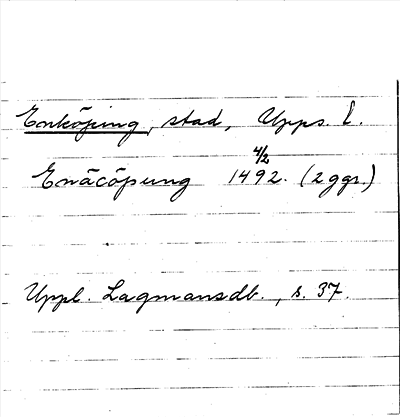 Enköping, stad, Upps. l.
Enäcöpung 4/2 1492. (2 ggr.)
Uppl. Lagmansdb., s. 37.